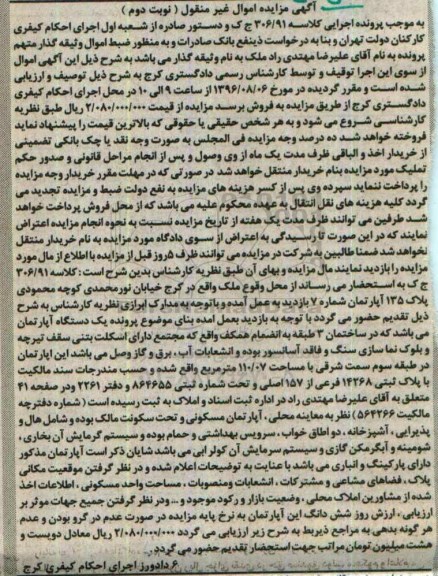 آگهی مزایده اموال غیر منقول ( نوبت دوم )
به موجب پرونده اجرایی کلاسه ۳۰۶/۹۱ ج ک و دستور صادره از شعبه اول اجرای احکام کیفری
کارکنان دولت تهران و بنا به درخواست ذینفع بانک صادرات و به منظور ضبط اموال وثیقه گذار متهم
پرونده به نام آقای علیرضا مهتدی راد ملک به نام وثیقه گذار می باشد به شرح ذیل این آگهی اموال
از سوی این اجرا توقیف و توسط کارشناس رسمی دادگستری کرج به شرح ذیل توصیف و ارزیابی
شده است و مقرر گردیده در مورخ ۱۳۹۶/۰۸/۰۶ از ساعت ۹ الی ۱۰ در محل اجرای احکام کیفری
دادگستری کرج از طریق مزایده به فروش برسد مزایده از قیمت ۲/۰۸۰/۰۰۰/۰۰۰ ریال طبق نظریه
کارشناسی شروع می شود و به هر شخص حقیقی یا حقوقی که بالاترین قیمت را پیشنهاد نماید
فروخته خواهد شد ده درصد وجه مزایده فی المجلس به صورت وجه نقد یا چک بانکی تضمینی
از خریدار اخذ و الباقی ظرف مدت یک ماه از وی وصول و پس از انجام مراحل قانونی و صدور حکم
تملیک مورد مزایده بنام خریدار منتقل خواهد شد در صورتی که در مهلت مقرر خریدار وجه مزایده
را پرداخت ننماید سپرده وی پس از کسر هزینه های مزایده به نفع دولت ضبط و مزایده تجدید می
گردد کلیه هزینه های نقل انتقال به عهده محکوم علیه می باشد که از محل فروش پرداخت خواهد
شد طرفین می توانند ظرف مدت یک هفته از تاریخ مزایده نسبت به نحوه انجام مزایده اعتراض
نمایند که در این صورت تا رسیدگی به اعتراض از سوی دادگاه مورد مزایده به نام خریدار منتقل
نخواهد شد ضمنا طالبین به شرکت در مزایده می توانند ظرف ۵ روز قبل از مزایده با اطلاع از مال مورد
مزایده را بازدید نمایند مال مزایده و بهای آن طبق نظریه کارشناس بدین شرح است : کلاسه ۳۰۶/۹۱
ج ک به استحضار می رساند از محل وقوع ملک واقع در کرج خیابان نورمحمدی کوچه محمودی
پلاک ۱۳۵ آپارتمان شماره ۷ بازدید به عمل آمده و با توجه به مدارک ابرازی نظریه کارشناس به شرح
ذیل تقدیم حضور می گردد با توجه به بازدید بعمل آمده بنای موضوع پرونده یک دستگاه آپارتمان
می باشد که در ساختمان ۳ طبقه به انضمام همکف واقع که مجتمع دارای اسکلت بتنی سقف تیرچه
و بلوک نماسازی سنگ و فاقد آسانسور بوده و انشعابات آب ، برق و گاز وصل می باشد این اپارتمان
در طبقه سوم سمت شرقی با مساحت ۱۱۰/۰۷ مترمربع واقع شده و حسب مندرجات سند مالکیت
با پلاک ثبتی ۱۴۲۶۸ فرعی از ۱۵۷ اصلی و تحت شماره ثبتی ۸۶۴۶۵۵ و دفتر ۲۲۶۱ و در صفحه ۴۱
متعلق به آقای علیرضا مهتدی راد در اداره ثبت اسناد و املاک به ثبت رسیده است ( شماره دفترچه
مالکیت ۵۶۴۲۶۶ ) نظر به معاینه محلی ، آپارتمان مسکونی و تحت سکونت مالک بوده و شامل هال و
پذیرایی ، آشپزخانه ، دو اطاق خواب ، سرویس بهداشتی و حمام بوده و سیستم گرمایش آن بخاری ،
شومینه و آبگرمکن گازی و سیستم سرمایش آن کولر ابی می باشد شایان ذکر است آپارتمان مذکور
دارای پارکینگ و انباری می باشد با عنایت به توضیحات اعلام شده و در نظر گرفتن موقعیت مکانی
پلاک ، فضاهای مشاعی و مشترکات ، انشعابات ومنصوبات ، مساحت واحد مسکونی ، اطلاعات اخذ
شده از مشاورین املاک محلی ، وضعیت بازار و رکود موجود و ... ودر نظر گرفتن جمیع جهات موثر بر
ارزیابی ، ارزش روز شش دانگ این آپارتمان به نرخ پایه مزایده در صورت عدم در گرو بودن و عدم
هر گونه بدهی به مراجع ذیربط به شرح زیر ارزیابی می گردد ۲/۰۸۰/۰۰۰/۰۰۰ ریال معادل دویست و
هشت میلیون تومان مراتب جهت استحضار تقدیم حضور می گردد .
۶ دادورز اجرای احکام کیفری کرج